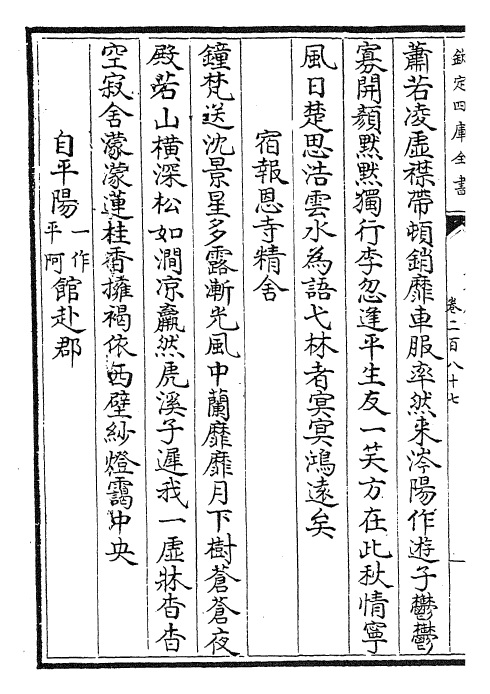 欽定四庫全書
卷二百八十七
蕭若凌虛襟帶頓銷靡車服率然来涔陽作遊子鬱鬱
寡開顏黙黙獨行李忽逢平生友一笑方在此秋情寧
風日楚思浩雲水為語弋林者㝠㝠鴻遠矣
宿報恩寺精舍
鐘梵送沈景星多露漸光風中蘭靡靡月下樹蒼蒼夜
殿若山橫深松如澗凉羸然虎溪子遲我一虛牀杳杳
空寂舍濛濛蓮桂香擁褐依西壁紗燈靄中央
自平陽一作平阿館赴郡